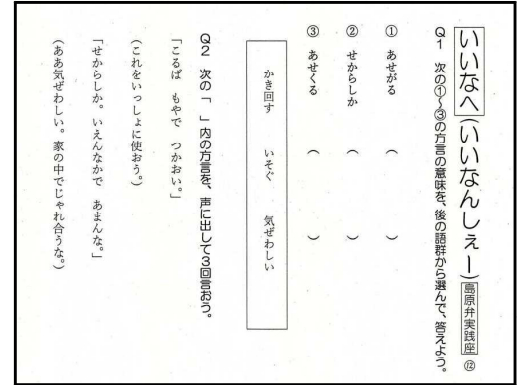 いいなへ(いいなんしぇー)島原弁実践座⑫
Q1 次の①〜③の方言の意味を、後の語群から選んで、答えよう。
① あせがる ( )
② せからしか ( )
③ あせくる ( )
かき回す いそぐ 気ぜわしい
Q2 次の「 」内の方言を、声に出して3回言おう。
「こるば もやで つかおい。」
(これをいっしょに使おう。)
「せからしか。いえんなかで あまんな。」
(ああ気ぜわしい。家の中でじゃれ合うな。)